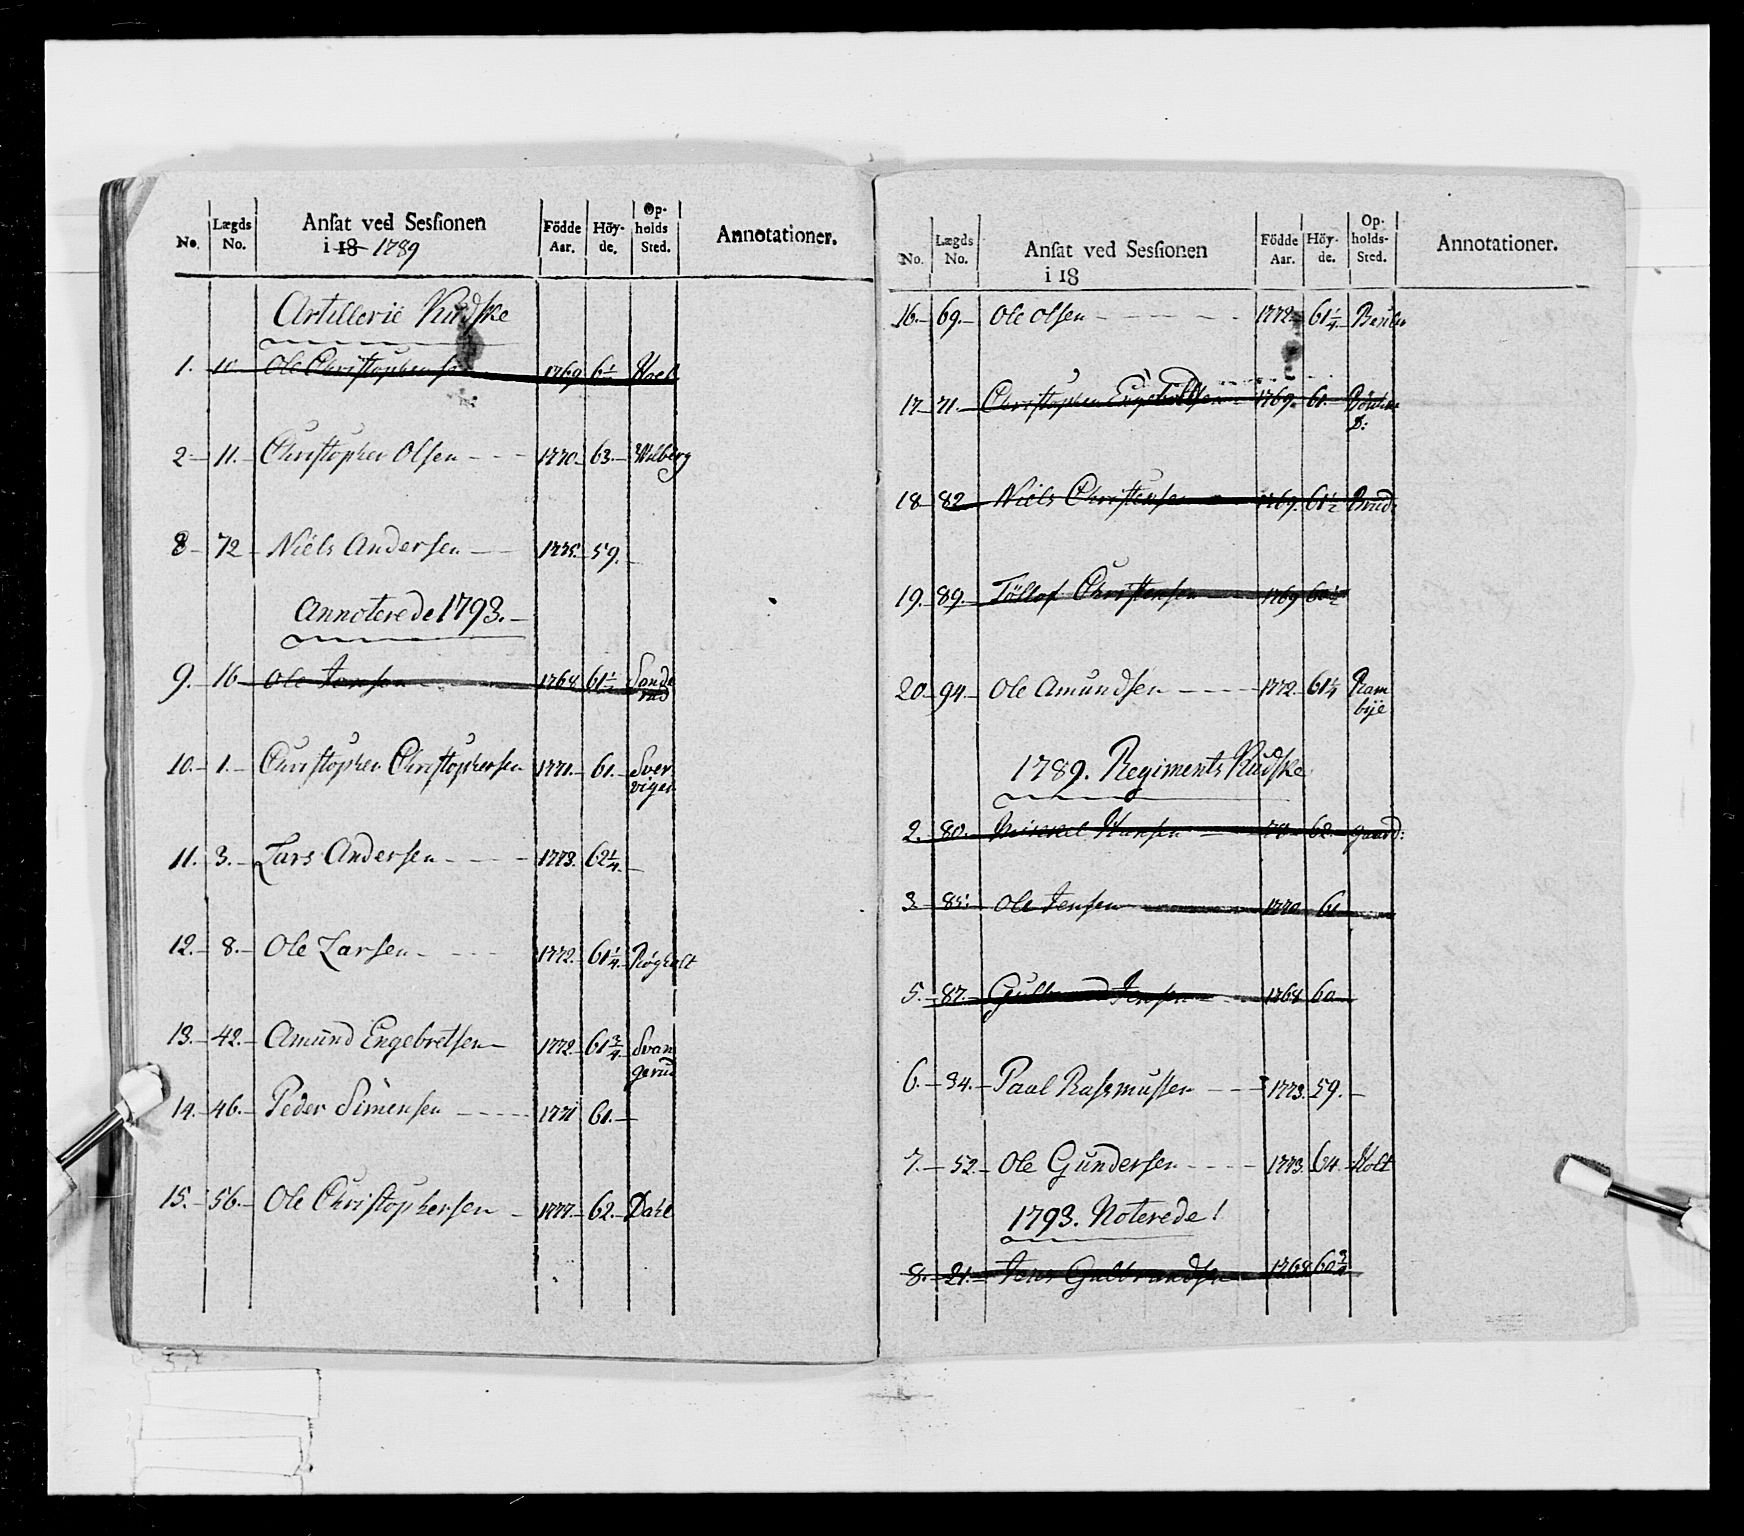 No. Lægds No. Ansat ved Sessionen i 18 1789 Födde Aar. Höy-de. Op-holds Sted. Annotationer.
Artillerie Kudske
1. 10 Ole Christophersen 1769 Hoel
2 – 11. – Christopher Olsen – – – 1770. – 63. – Wilberg
8 – 72 – Niels Andersen – – 1775. – 59. –
Annoterede 1793. –
9. – 16 – Ole Jensen 1768 61½ Sande rud
10. – 1. – Christopher Christophersen 1771. – 61. – Sver viger
11. – 3. – Lars Andersen – – – – 1773. 62¼. –
12. – 8. – Ole Larsen – – – – 1772. 61¼. – Røgholt
13. – 42. – Amund Engebretsen – 1772. 61¾. – Svan gerud
14. – 46. – Peder Simensen – – – – 1771 61. –
15. – 56. – Ole Christophersen – 1777. – 62. – Dahl
No. Lægds No. Ansat ved Sessionen i 18 Födde Aar. Höy-de. Op-holds-Sted. Annotationer.
16. – 69. – Ole Olsen – – – – – – 1772. – 61¼. –
17 – 71. – Christopher Engebretsen 1769. 61. –
18 – 82 – Niels Christensen 1769. 61½ Brud:
19. – 89. – Tollof Christensen 1769 60½
20 – 94. – Ole Amundsen – – – – 1772 – 61¼ Ram bye
1789. Regiments Kudske
2. – 80. – Hansen 70 – 62. – gaard:
3 – 85. Ole Jensen 1770 61
5. – 87. – Gulbrand Jensen – 1768 60
6. – 34. – Paul Rasmussen – – – 1773. 59. –
7. – 52. – Ole Gundersen – – – – 1773. 64. – Holt
1793. Noterede!
8. – 21. – Jens Gulbrandsen 1768 60¾